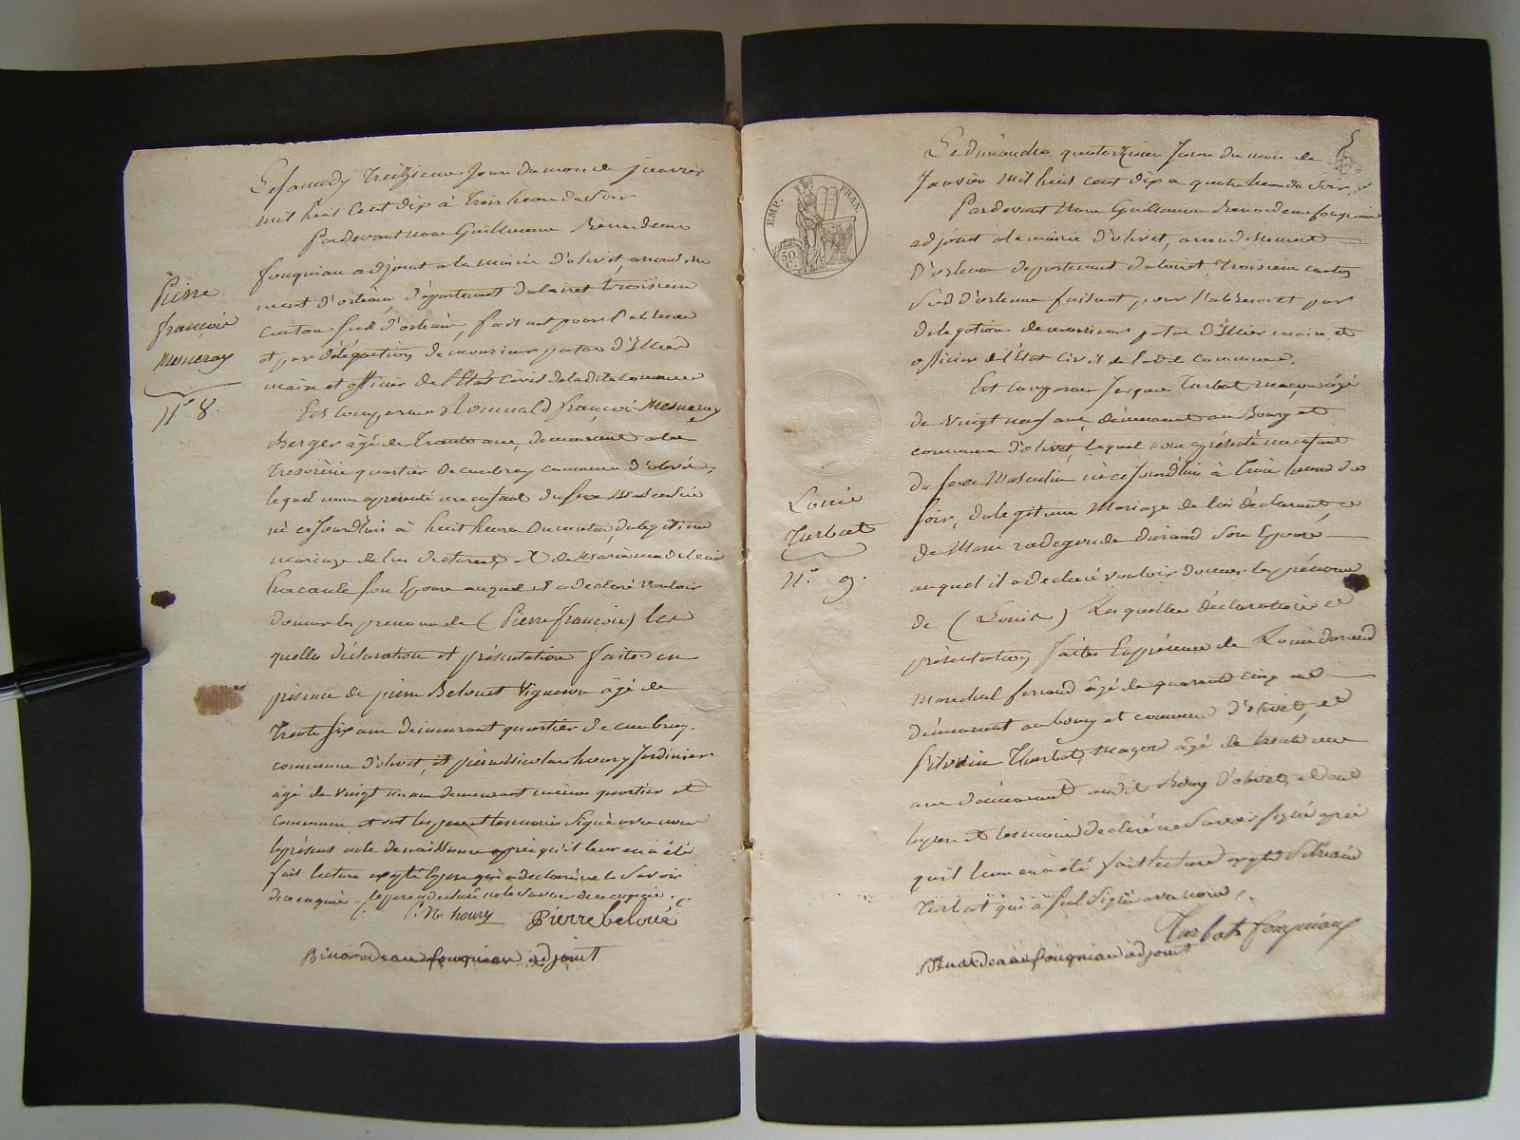 Le Samedy Treizieme Jour du mois de Janvier
mil huit Cent dix à Trois heures du Soir
Pardevant nous Guillaume
fougniau adjoint a la mairie d'olivet, arrondisse
ment d'orléans, département du loiret troisieme
Canton Sud d'orléans, faisant pour l'absence
et par délégation de monsieur d'Illiers
maire et officier de l'Etat Civil de ladite Commune
Pierre
françois
Mesneray
N.° 8.
Est comparu Romuald françois Mesneray
Berger âgé de Trente ans, demeurant a la
quartier de commune d'olivet,
lequel nous a présenté un enfant du sexe Masculin
né cejourd'huy à huit heures du matin, du légitime
mariage de lui déclarant, & de Marie madeleine
son Epouse auquel il a déclaré vouloir
donner les prenoms de (Pierre françois) les
quelles déclaration et présentation faites en
présence de pierre Belouet Vigneron âgé de
Trente six ans demeurant quartier de
commune d'olivet, et pierre Nicolas houry Jardinier
âgé de vingt un ans demeurant même quartier et
commune et ont les pere et temoins Signé avec nous
le présent acte de naissance après qu'il leur en a été
fait lecture excepté le pere qui a declaré ne le Savoir
de ce enquis.
P. N. houry Pierre beloué
fougniau adjoint
EMP. FRAN.
50
C.
5
Le dimanche quatorzieme Jour du mois de
Janvier mil huit cent dix a quatre heures du Soir
Pardevant Nous Guillaume fougniau
adjoint a la mairie d'olivet, arrondissement
d'orléans département du loiret, troisieme canton
Sud d'orleans faisant, pour l'absence et par
delegation de monsieur d'Illiers maire et
officier de l'Etat Civil de ladite Commune.
Louis
Turbat
N.° 9.
Est comparu Jacques Turbat maçon âgé
de vingt neuf ans, demeurant au Bourg et
commune d'olivet, lequel nous a présenté un enfant
du sexe Masculin né cejourd'hui à Trois heures du
Soir, du légitime Mariage de lui déclarant, et
de Marie radegonde durand Son Epouse,
auquel il a declaré vouloir donner les prénoms
de (Louis) Lesquelles déclaration et
présentation faites En présence de Louis durand
marechal ferrand âgé de quarante cinq ans
demeurant au bourg et commune d'olivet, et
Silvain Thurbat, maçon âgé de trente
ans demeurant audit Bourg d'olivet, et ont
les pere et temoins declaré ne Savoir signé après
qu'il leur en a été fait lecture excepté Silvain
Turbat qui a seul Signé avec nous.
Turbat fougniau
fougniau adjoint